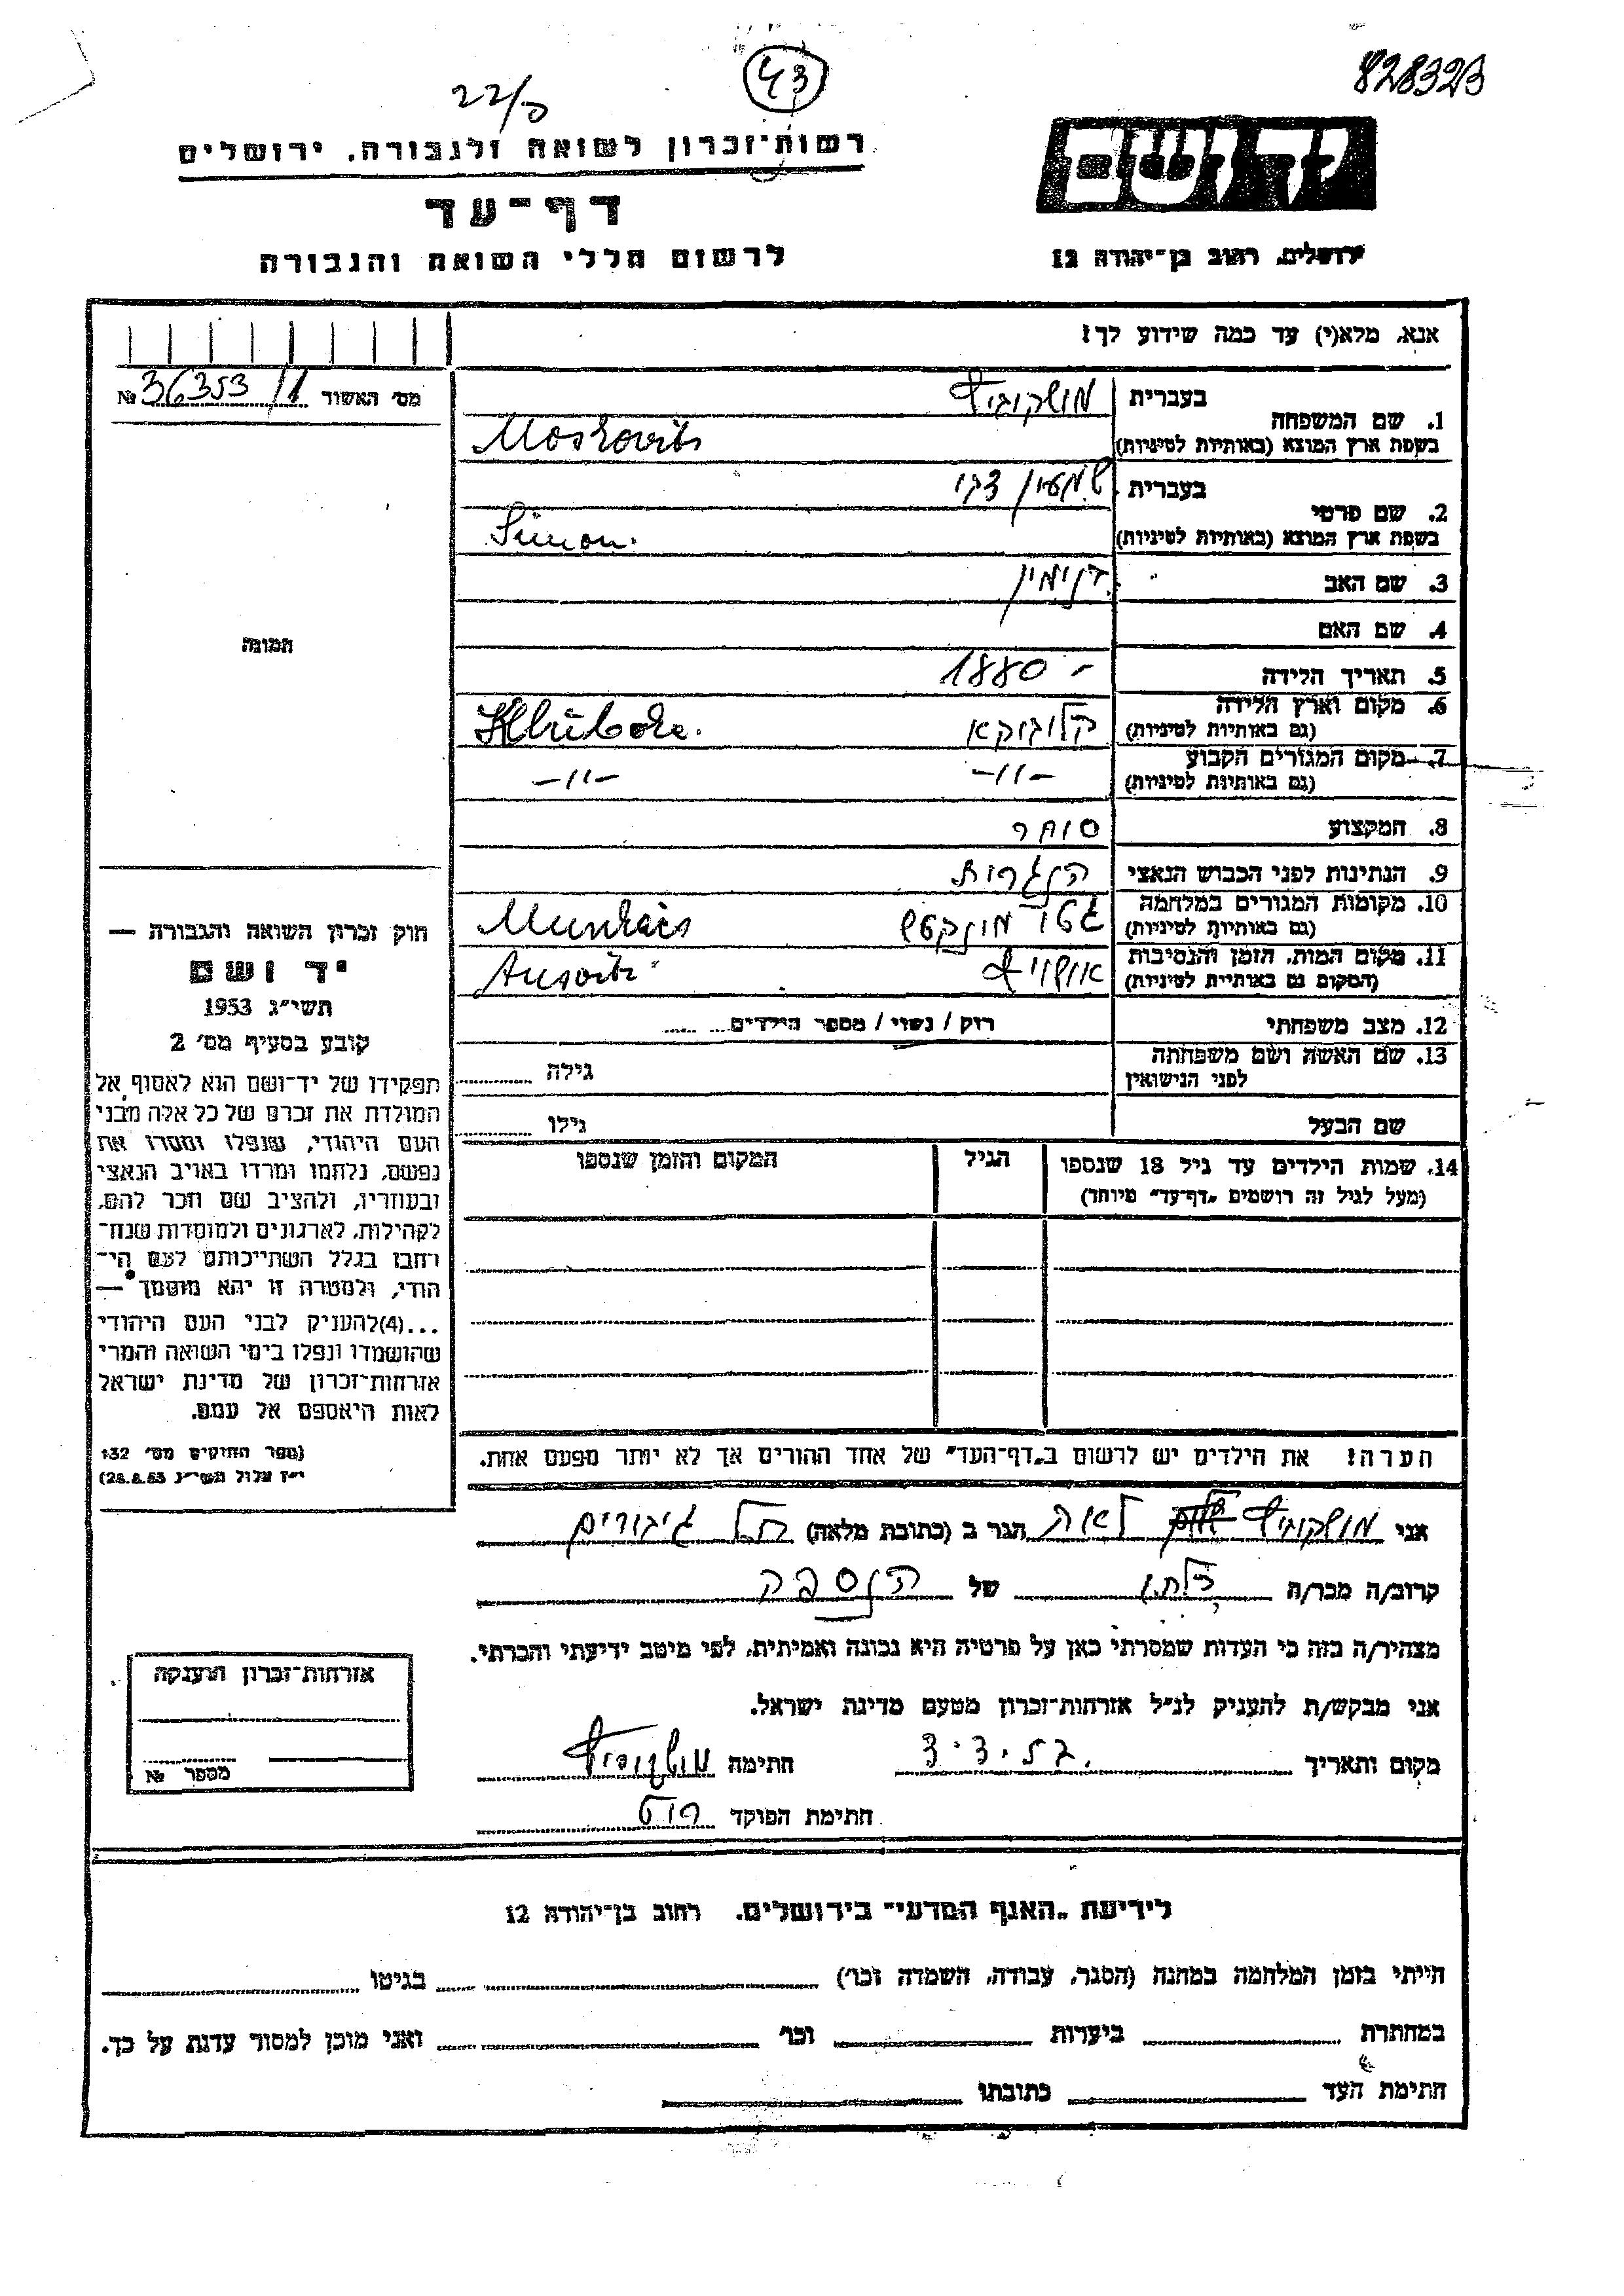 43
22/5
828323
רשות־זכרון לשואה ולגבורה, ירושלים
דף־עד
לרשום חללי השואה והגבורה
יד ושם
ירושלים, רחוב בן־יהודה 12
אנא, מלא(י) עד כמה שידוע לך!
מס׳ האשור 36353/1 №
1. שם המשפחה
בעברית מושקוביץ
בשפת ארץ המוצא (באותיות לטיניות) Moskovits
2. שם פרטי
בעברית שמעון צבי
בשפת ארץ המוצא (באותיות לטיניות) Simon.
3. שם האב בנימין
4. שם האם
5. תאריך הלידה - 1880
6. מקום וארץ הלידה
(גם באותיות לטיניות)
7. מקום המגורים הקבוע -״- -״-
(גם באותיות לטיניות)
8. המקצוע סוחר
9. הנתינות לפני הכבוש הנאצי הונגרית
10. מקומות המגורים במלחמה גטו מונקטש
(גם באותיות לטיניות) Munkács
11. מקום המות, הזמן והנסיבות אושויץ
(המקום גם באותיות לטיניות) Ausvitz
12. מצב משפחתי רוק / נשוי / מספר הילדים
13. שם האשה ושם משפחתה גילה
לפני הנישואין
שם הבעל גילו
14. שמות הילדים עד גיל 18 שנספו הגיל המקום והזמן שנספו
(מעל לגיל זה רושמים ״דף־עד״ מיוחד)
הערה! את הילדים יש לרשום ב״דף־העד״ של אחד ההורים אך לא יותר מפעם אחת.
תמונה
חוק זכרון השואה והגבורה —
יד ושם
תשי״ג 1953
קובע בסעיף מס׳ 2
תפקידו של יד־ושם הוא לאסוף אל
המולדת את זכרם של כל אלה מבני
העם היהודי, שנפלו ומסרו את
נפשם, נלחמו ומרדו באויב הנאצי
ובעוזריו, ולהציב שם וזכר להם,
לקהילות, לארגונים ולמוסדות שנח־
רבו בגלל השתייכותם לעם הי־
הודי, ולמטרה זו יהא מוסמך —
...(4)להעניק לבני העם היהודי
שהושמדו ונפלו בימי השואה והמרי
אזרחות־זכרון של מדינת ישראל
לאות היאספם אל עמם.
(ספר החוקים מס׳ 132
י״ז אלול תשי״ג 28.8.53)
אני מושקוביץ לאה הגר ב (כתובת מלאה) תל גיבורים
קרוב/ה מכר/ה כלתו של הנספה
מצהיר/ה בזה כי העדות שמסרתי כאן על פרטיה היא נכונה ואמיתית, לפי מיטב ידיעתי והכרתי.
אני מבקש/ת להעניק לנ״ל אזרחות־זכרון מטעם מדינת ישראל.
מקום ותאריך חתימה מושקוביץ
חתימת הפוקד
אזרחות־זכרון הוענקה
מספר №
לידיעת ״האגף המדעי״ בירושלים, רחוב בן־יהודה 12
הייתי בזמן המלחמה במחנה (הסגר, עבודה, השמדה וכו׳) בגיטו
במחתרת ביערות וכו׳ ואני מוכן למסור עדות על כך.
חתימת העד כתובתו